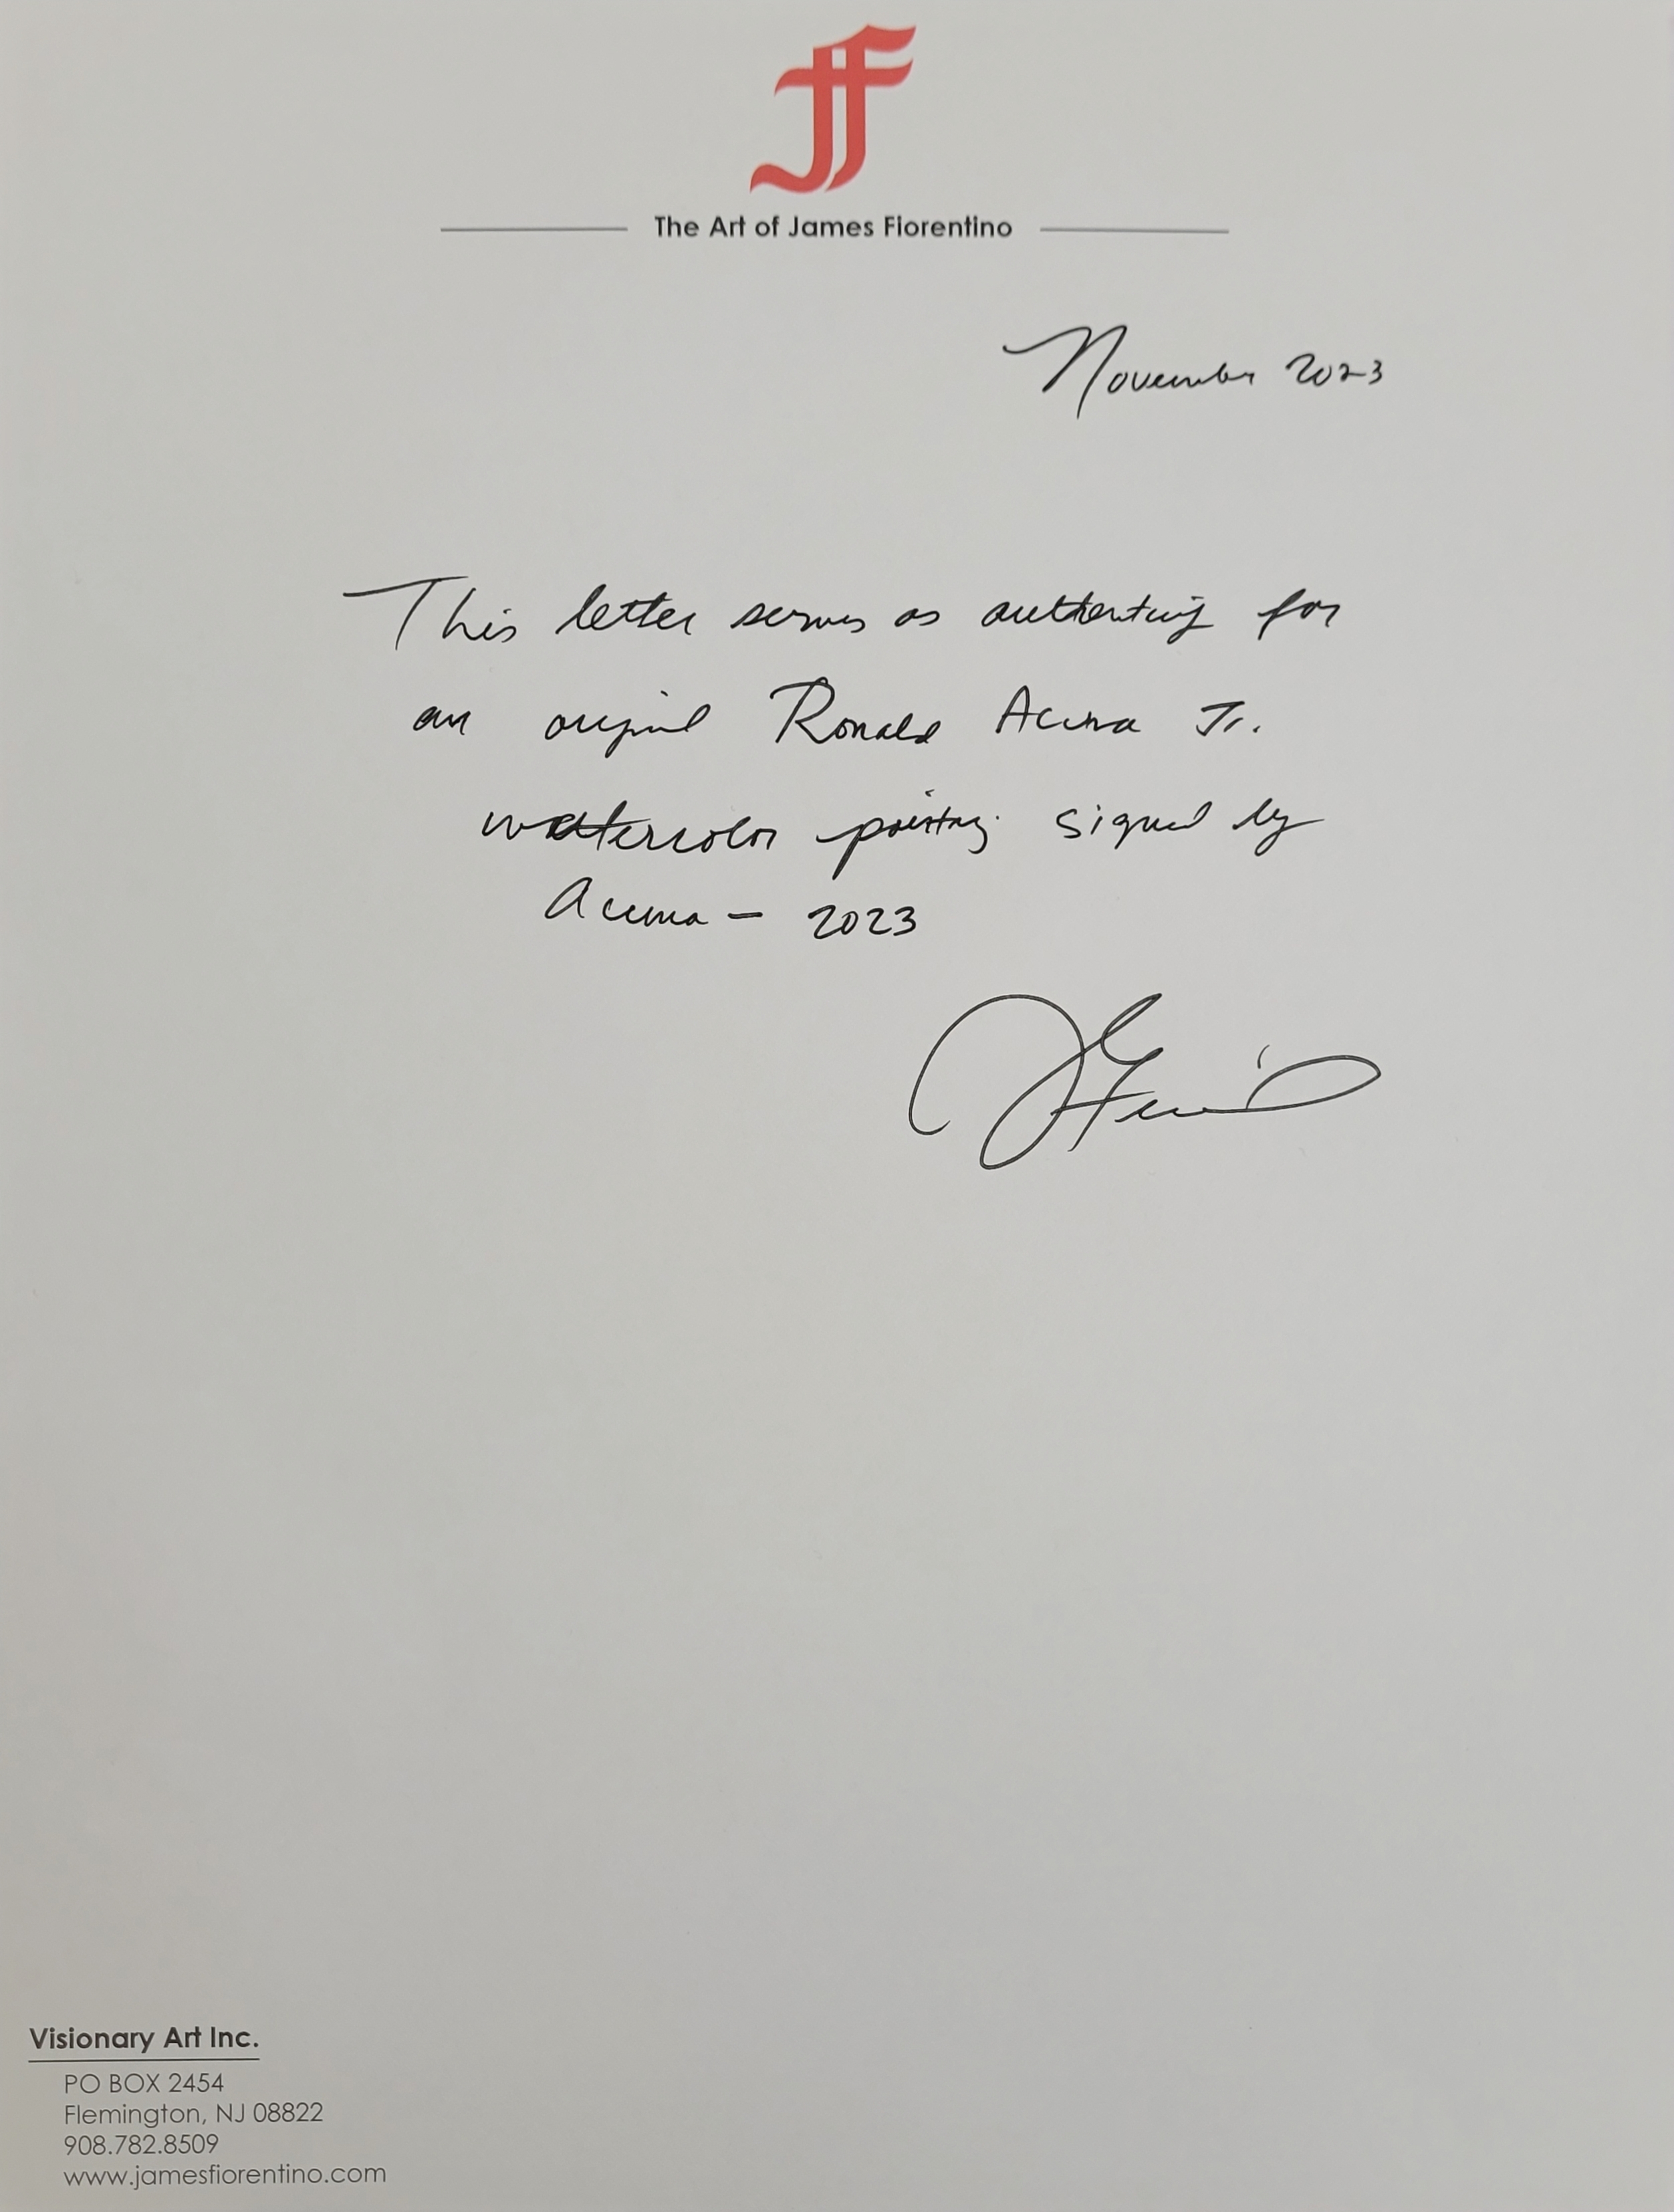 JF
The Art of James Fiorentino
November 2023
This letter serves as authenticity for
an original Ronald Acuna Jr.
watercolor painting signed by
Acuna - 2023
Visionary Art Inc.
PO BOX 2454
Flemington, NJ 08822
908.782.8509
www.jamesfiorentino.com